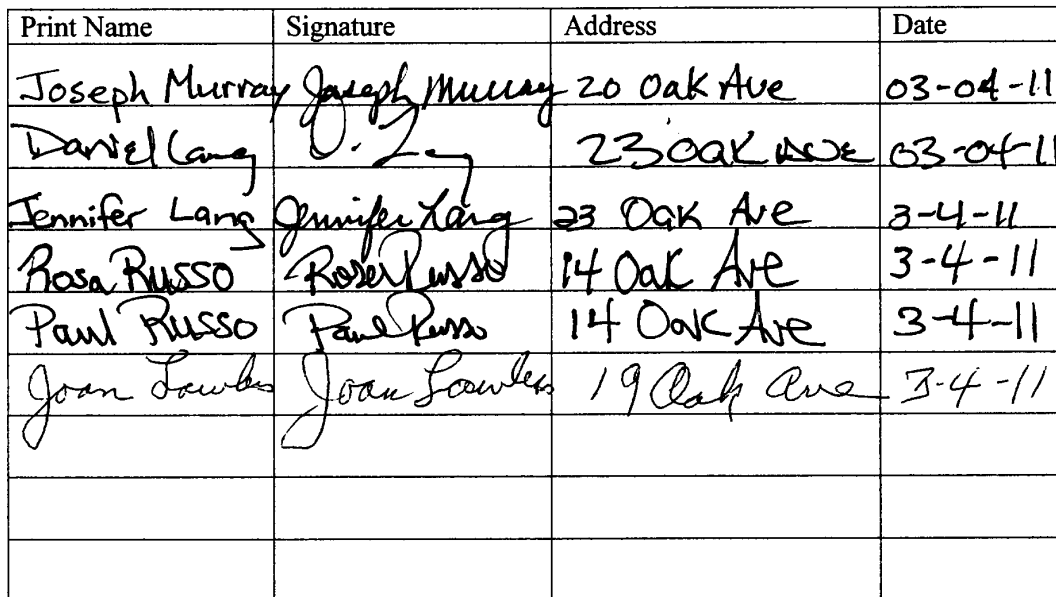 Print Name Signature Address Date
Joseph Murray Joseph Murray 20 Oak Ave 03-04-11
Daniel Lang D. L 23 Oak Ave 03-04-11
Jennifer Lang Jennifer Lang 23 Oak Ave 3-4-11
Rosa Russo Rosa Russo 14 Oak Ave 3-4-11
Paul Russo Paul Russo 14 Oak Ave 3-4-11
Joan Joan 19 Oak Ave 3-4-11